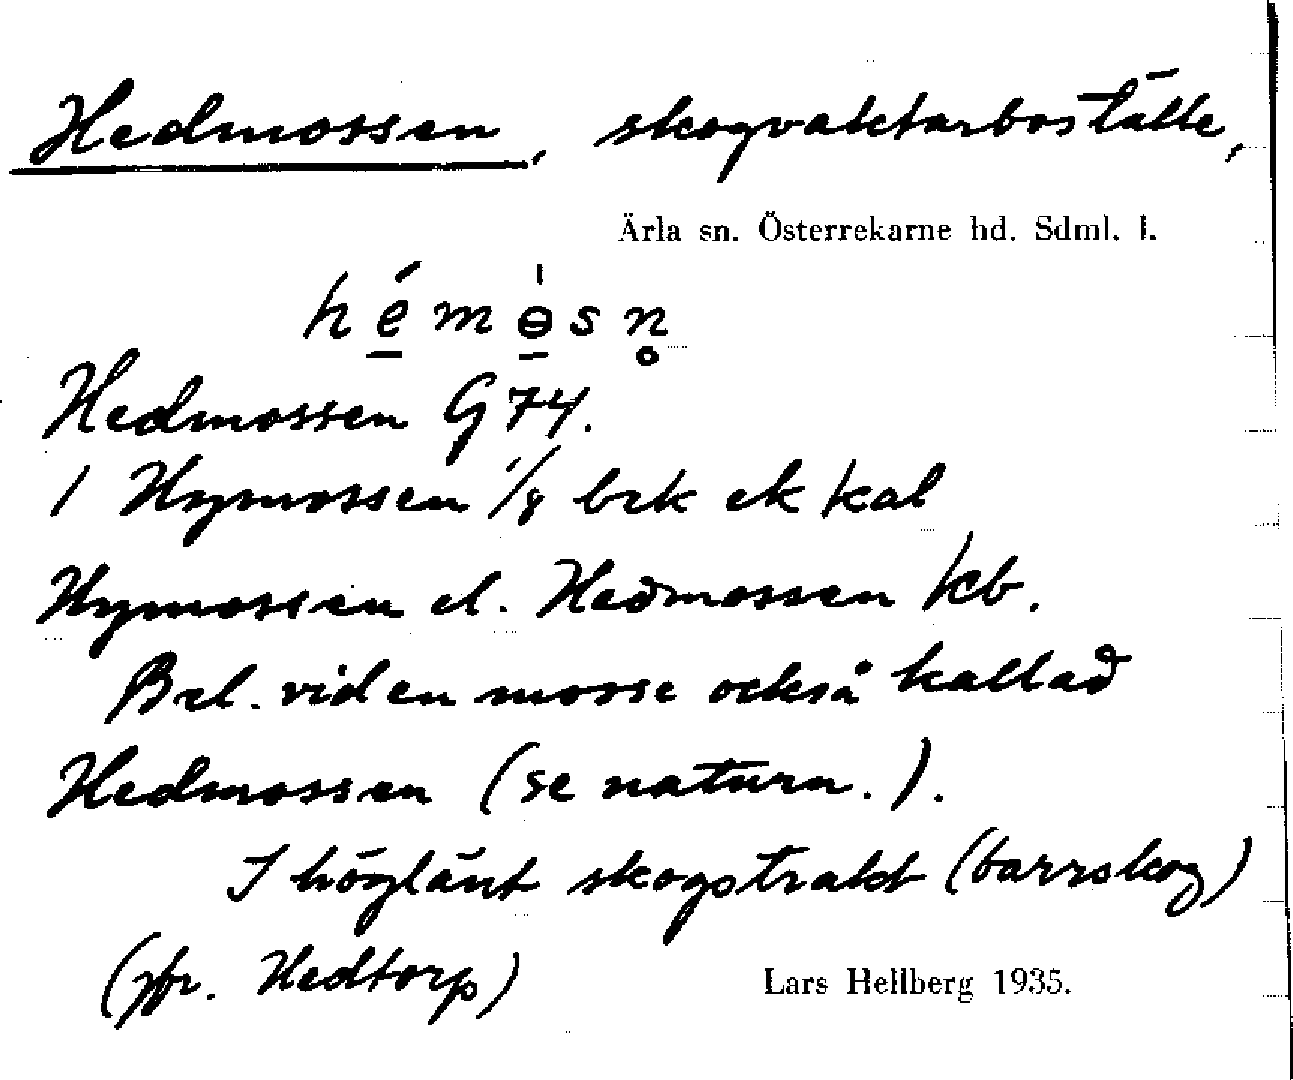 Hedmossen, skogvaktarboställe,
Ärla sn. Österrekarne hd. Sdml. l.
hé̱mɵ̱̍sn̥
Hedmossen G 74.
1 Hymossen 1/8 brk ek kal
Hymossen el. Hedmossen kb.
Bel. vid en mosse också kallad
Hedmossen (se naturn.).
I höglänt skogstrakt (barrskog)
(jfr. Hedtorp)
Lars Hellberg 1935.